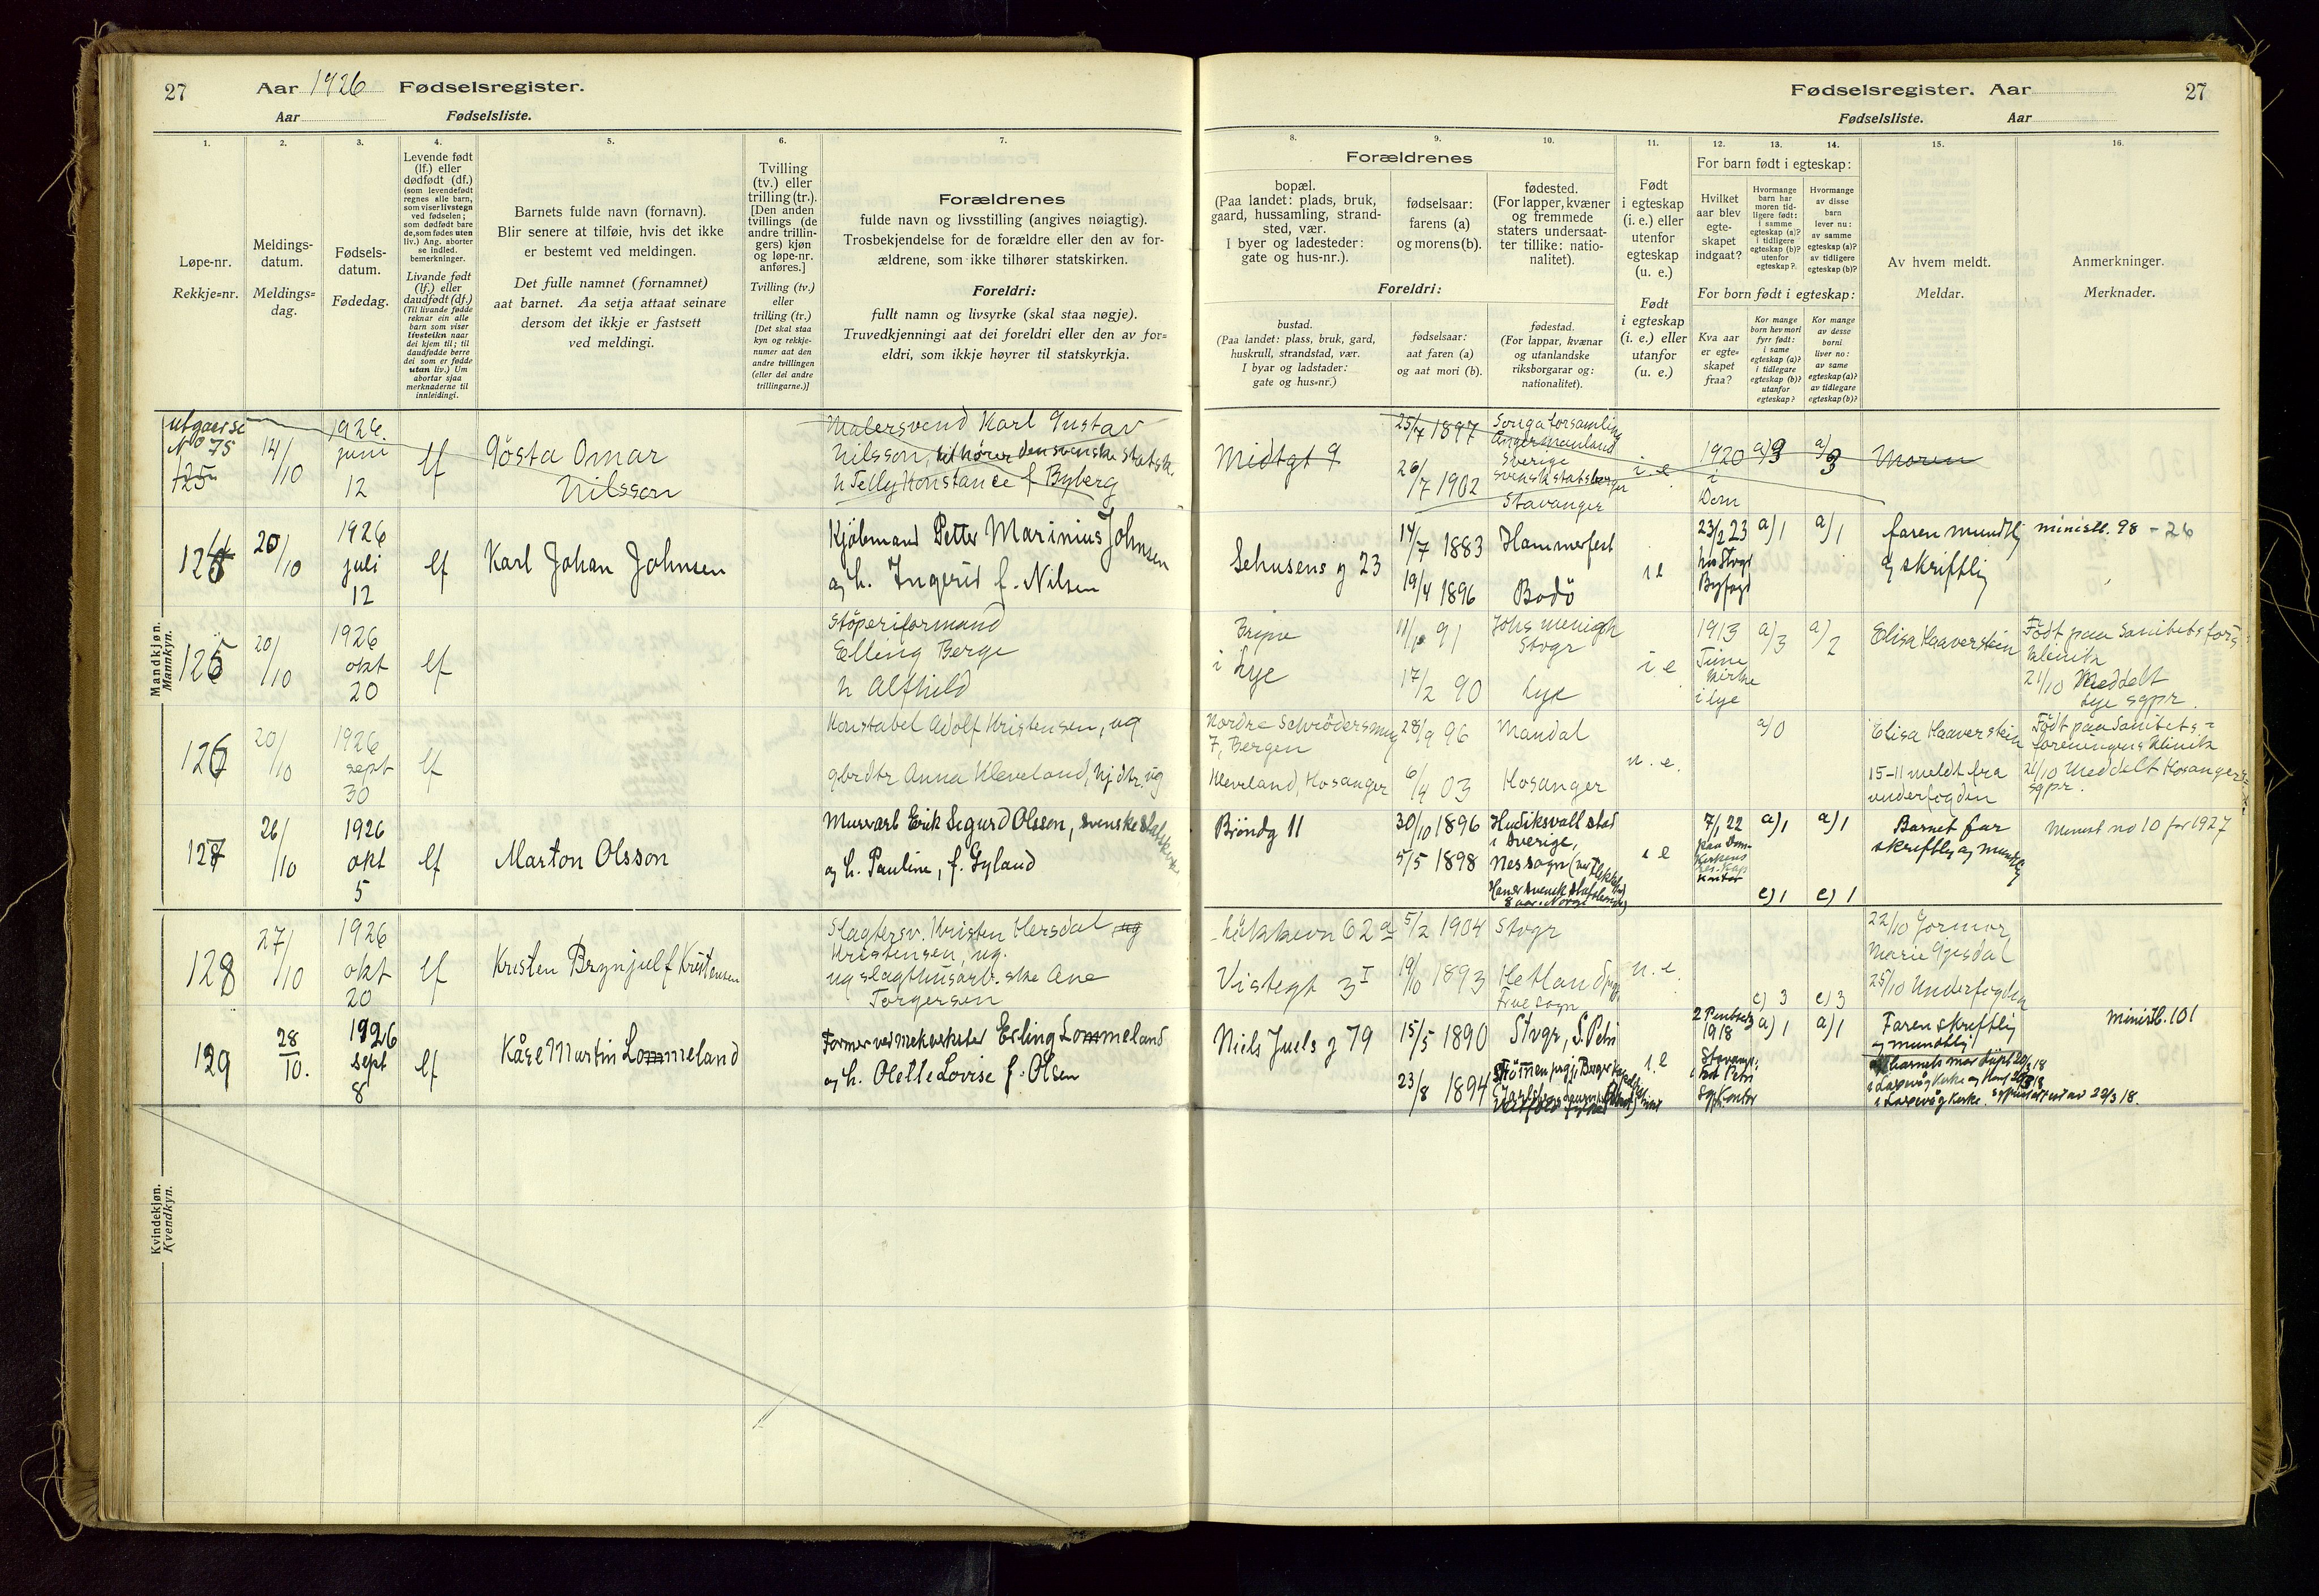 27 Aar 1926 Fødselsregister.
Aar Fødselsliste.
Fødselsregister. Aar 27
Fødselsliste. Aar
1. 2. 3. 4. 5. 6. 7.
Løpe-nr.
Rekkje=nr.
Meldings-
datum.
Meldings=
dag.
Fødsels-
datum.
Fødedag.
Levende født
(lf.) eller
dødfødt (df.)
(som levendefødt
regnes alle barn,
som viser livstegn
ved fødselen;
som dødfødt bare
de, som fødes uten
liv.) Ang. aborter
se indled.
bemerkninger.
Livande født
(lf.) eller
daudfødt (df.)
(Til livande fødde
reknar ein alle
barn som viser
livsteikn naar
dei kjem til; til
daudfødde berre
dei som er fødde
utan liv.) Um
abortar sjaa
merknaderne til
innleidingi.
Barnets fulde navn (fornavn).
Blir senere at tilføie, hvis det ikke
er bestemt ved meldingen.
Det fulle namnet (fornamnet)
aat barnet. Aa setja attaat seinare
dersom det ikkje er fastsett
ved meldingi.
Tvilling
(tv.) eller
trilling (tr.).
[Den anden
tvillings (de
andre trillin-
gers) kjøn
og løpe-nr.
anføres.]
Tvilling (tv.)
eller
trilling (tr.)
[Det skal staa
kyn og rekkje-
numer aat den
andre tvillingen
(eller dei andre
trillingarne.)]
Forældrenes
fulde navn og livsstilling (angives nøiagtig).
Trosbekjendelse for de forældre eller den av for-
ældrene, som ikke tilhører statskirken.
Foreldri:
fullt namn og livsyrke (skal staa nøgje).
Truvedkjenningi aat dei foreldri eller den av for=
eldri, som ikkje høyrer til statskyrkja.
8. 9. 10. 11. 12. 13. 14. 15. 16.
Forældrenes
bopæl.
(Paa landet: plads, bruk,
gaard, hussamling, strand-
sted, vær.
I byer og ladesteder:
gate og hus-nr.).
fødselsaar:
farens (a)
og morens (b).
fødested.
(For lapper, kvæner
og fremmede
staters undersaat-
ter tillike: natio-
nalitet).
Foreldri:
bustad.
(Paa landet: plass, bruk, gard,
huskrull, strandstad, vær.
I byar og ladstader:
gate og hus=nr.)
fødselsaar:
aat faren (a)
og aat mori (b).
fødestad.
(For lappar, kvænar
og utanlandske
riksborgarar og:
nationalitet).
Født
i egteskap
(i. e.) eller
utenfor
egteskap
(u. e.)
Født
i egteskap
(i. e.) eller
utanfor
(u. e.)
For barn født i egteskap:
Hvilket
aar blev
egte-
skapet
indgaat?
Hvormange
barn har
moren tid-
ligere født:
i samme
egteskap (a)?
i tidligere
egteskap (b)?
utenfor
egteskap?
Hvormange
av disse
barn
lever nu:
av samme
egteskap (a)?
av tidligere
egteskap (b)?
For born født i egteskap:
Kva aar
er egte=
skapet
fraa?
Kor mange
born hev mori
fyrr født:
i same
egteskap (a)?
i tidlegare
egteskap (b)?
utanfor
egteskap?
Kor mange
av desse
borni
liver no:
av same
egteskap (a)?
av tidlegare
egteskap (b)?
Av hvem meldt.
Meldar.
Anmerkninger.
Merknader.
Mandkjøn.
Mannkyn.
utgaar se
No 75
125 14/10 1926. juni 12 lf Gösta Omar
Nilsson
Malersvend Karl Gustav
Nilsson, tilhører den svenske statsk.
h Telly Konstance f Byberg
Midtgt 9 25/7 1897
26/7 1902
Sverige
svensk statsborger
Stavanger
i. e. 1920
i
Dom a/3 a/3 Moren
124 20/10 1926 juli 12 lf Karl Johan Johnsen
Kjöbmand Petter Marinius Johnsen
og h. Ingerid f. Nilsen
Sehusens g 23 14/7 1883 Hammerfest
19/4 1896 Bodö
i e 23/2 23
hos Stvgr
Byfogd a)1 a)1 faren mundtlig
og skriftlig ministb. 98 - 26
125 20/10 1926 okt 20 lf
Støperiformand
Elling Berge
h Alfhild
Bryne
i Lye
91
Stvgr
17/2 90 Lye
i e. 1913
Time
Kirke
i Lye a/3 a/2 Elisa Haaverstein Födt paa Sanitetsfors
klinik
21/10 Meddelt
Lye sgpr.
126 20/10 1926 sept 30 lf
Konstabel Adolf Kristensen, ug
gbrdtr Anna Kleveland, hj dtr. ug
Nordre Schrödersmug
7, Bergen 28/9 96 Mandal
Kleveland, Hosanger 6/4 03 Hosanger
u. e. a/0 Elisa Haaverstein
15-11 meldt fra
underfogden
Födt paa Sanitets=
foreningens Klinik
21/10 Meddelt Hosangers
sgpr.
127 26/10 1926 okt 5 lf Marton Olsson
Murvarb Erik Sigurd Olsson, svenske Statskirke
og h. Pauline, f. Gyland
Bröndg 11 30/10 1896 Hudiksvall stad
i Sverige,
5/5 1898 Nes sogn
i e 7/1 22
paa Dom-
kirkens
kontor a)1 a)1
c)1 c)1 Barnets far
skriftlig og mundtlig Minist no 10 for 1927
128 27/10 1926 okt 20 lf Kristen Brynjulf Kristensen
Slagtersv. Kristen Hersdal ug
Kristensen, ug.
og slagthusarb.ske Ane
Torgersen
Lökkevn 62 a 5/2 1904 Stvgr
Vistegt 3 I 19/10 1893 Hetland
Frue sogn
u. e. c) 3 c) 3 22/10 Jormor
Marie Gjesdal
25/10 Underfogden
129 28/10. 1926 sept 8 lf Kåre Martin Lommeland
Former ved mek verksted Erling Lommeland
og h. Olette Lovise f. Olsen
Niels Juels g 79 15/5 1890 Stvgr, S. Petri
23/8 1894
i. e 2 Pentsedg
1918
Stavang.
St Petri
Kontor a) 1 a) 1 Faren skriftlig
og mundtlig
ministb. 101
Kvindekjøn.
Kvendkyn.